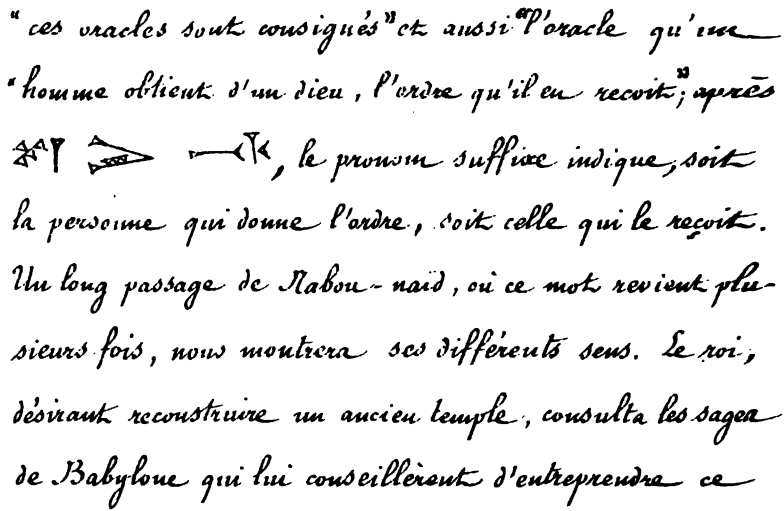 “ces oracles sont consignés” et aussi “l'oracle qu'un
“homme obtient d'un dieu, l'ordre qu'il en reçoit”; après
, le pronom suffixe indique, soit
la personne qui donne l'ordre, soit celle qui le reçoit.
Un long passage de Nabou-naïd, où ce mot revient plu-
sieurs fois, nous montrera ses différents sens. Le roi,
désirant reconstruire un ancien temple, consulta les sages
de Babylone qui lui conseillèrent d'entreprendre ce